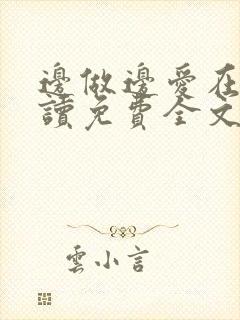 邊做邊愛在
讀免費全文
雲小言